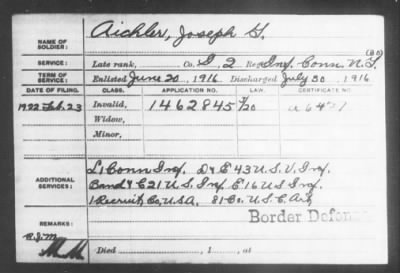 NAME OF SOLDIER: Aichler, Joseph G.
SERVICE: Late rank, Co. I, 2 Reg Inf. Conn. N. G.
TERM OF SERVICE: Enlisted June 20, 1916 Discharged July 30, 1916
DATE OF FILING. CLASS. APPLICATION NO. LAW. CERTIFICATE NO.
1922 Feb. 23 Invalid, 1462845
Widow,
Minor,
ADDITIONAL SERVICES: L 1 Conn Inf. D & E 43 U.S.V. Inf.
Band & C 21 U.S. Inf. E 16 U S Inf.
1 Recruit Co, U.S.A. 81 Co. U.S.C. Art.
Border Defense
REMARKS:
Died , 1 , at